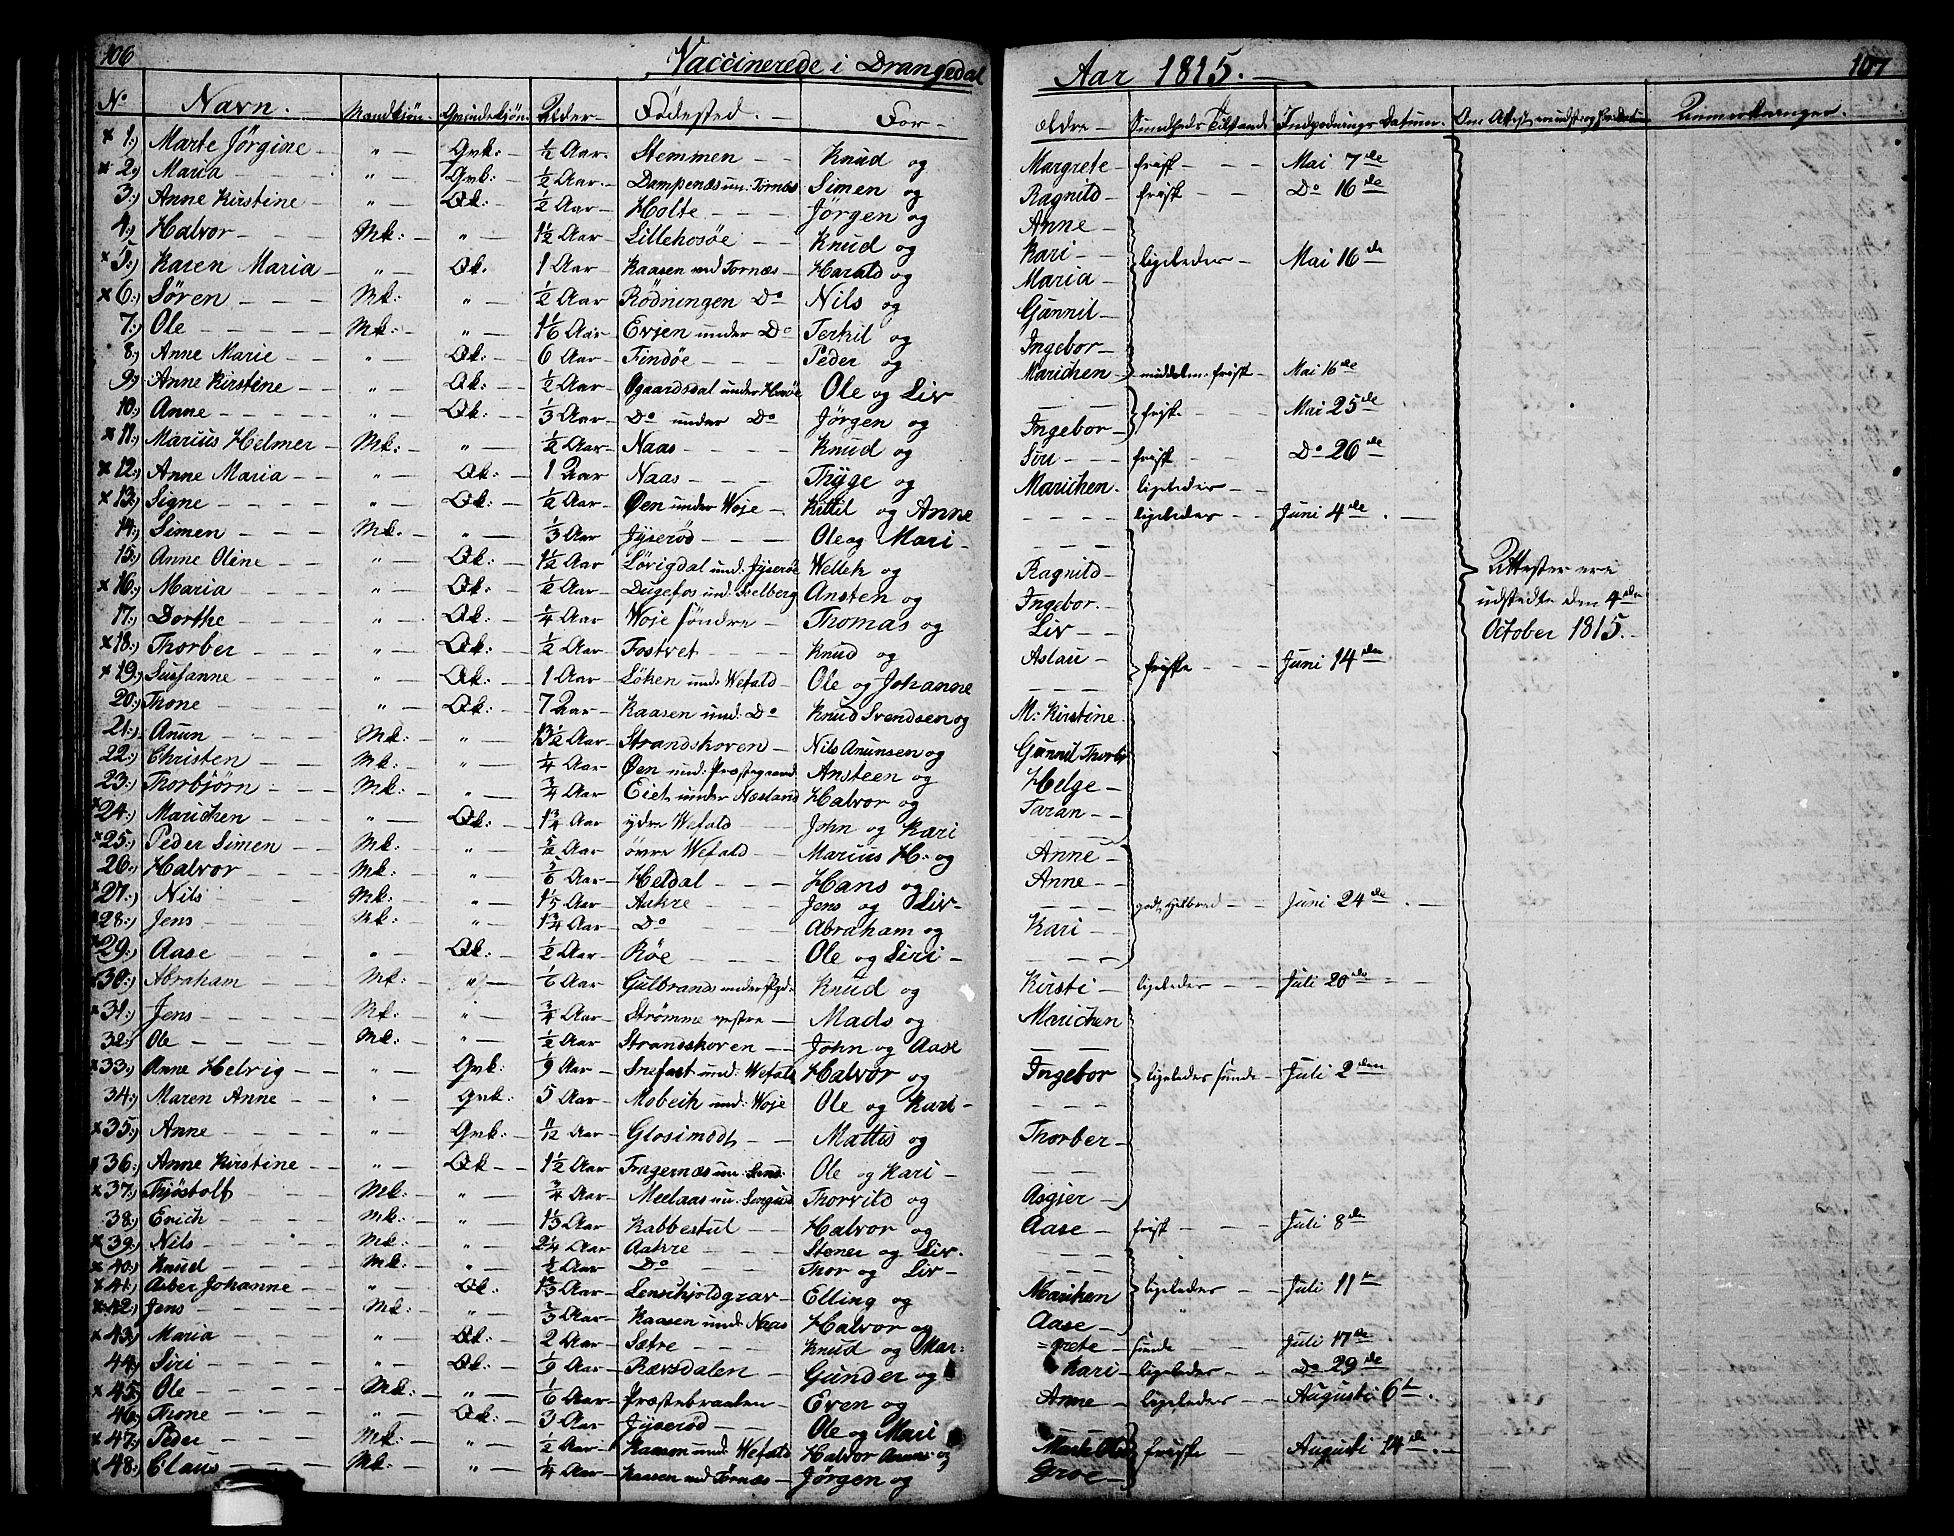 106 Vaccinerede i Drangedal Aar 1815. 107
No Navn. Mandkjön. Qvindekjön. Alder Födested. For- ældre Sundheds Tilstand Indpodnings Datum. Anmerkninger.
1:) Marte Jörgine " Qvk: ½ Aar. Stemmen Knud og Margrete frisk Mai 7de
2:) Maria " Qvk: ½ Aar. Dampenæs un: Tornæs Simen og Ragnild frisk Do 16de
3:) Anne Kirstine " Qk: ½ Aar Holte Jörgen og Anne
4:) Halvor Mk: " 1½ Aar Lillehosöe Knud og Kari
5:) Karen Maria " Qk. 1 Aar Kaasen ved Tornæs Harald og Maria ligeledes Mai 16de
6:) Sören Mk: " ½ Aar Rödningen Do Nils og Gunnil
7:) Ole Mk: " 1⅙ Aar Evjen under Do Terkil og Ingebor
8:) Anne Marie " Qk: 6 Aar Findöe Peder og Marichen middelm. frisk Mai 16de
9:) Anne Kirstine " Qk: ½ Aar Øgaardsdal under Hosöe Ole og Liv
10:) Anne " Qk: ⅓ Aar Do under Do Jörgen og Ingebor friske Mai 25de
11:) Marius Helmer Mk: " ½ Aar Naas Knud og Siri friske Do 26de
12:) Anne Maria " Qk: 1 Aar Naas Thyge og Marichen. ligeledes
13:) Signe " Qk: ½ Aar Øen under Woje Kittil og Anne ligeledes Juni 4de
14:) Simen Mk: " ⅓ Aar Jyseröd Ole og Mari
15:) Anne Oline " Qk: 1½ Aar Lörigdal und: Jyseröe Wellek og Ragnild
16:) Maria " Qk: ½ Aar Dugefos und: Ansten og Ingebor.
17:) Dorthe " Qk: ¼ Aar Woje söndre Thomas og Liv
18:) Thorber " Qk: ½ Aar Fostvet Knud og Aslau friske Juni 14den
19:) Susanne " Qk: 1 Aar Löken und: Wefald Ole og Johanne
20:) Thone " Qk: 7 Aar Kaasen und: Do Knud Svendsen og M: Kirstine.
21:) Anun Mk: " 13½ Aar Strandskoven Nils Anunsen og Gunnil Thorbj
22:) Christen Mk: " ¼ Aar Øen und: Præstegaard Ansteen og Helge
23:) Thorbjörn Mk: " ¾ Aar Eiet under Næsland Halvor og Taran
24:) Marichen " Qk: 1¾ Aar ydre Wefald John og Kari
25:) Peder Simen Mk: " Aar övre Wefald Marius H: og Anne
26:) Halvor Mk: " Aar Heldal Hans og Anne
27:) Nils Mk: " 1⅕ Aar Aakre Jens og Liv godt Helbred Juni 24de
28:) Jens Mk: " 1¾ Aar Do Abraham og Kari
29:) Aase " Qk: ½ Aar Röe Ole og Siri
30:) Abraham Mk: " ⅙ Aar Gulbrands under Knud og Kirsti ligeledes Juli 20de
31:) Jens Mk: " ¾ Aar Strömme vestre Mads og Marichen
32:) Ole Mk: " ½ Aar Strandskoven John og Aase
33:) Anne Helvig " Qvk: Aar Snefast und: Wefald Halvor og Ingebor ligeledes sunde Juli 2den
34:) Maren Anne " Qvk: 5 Aar Mobeik und: Woje Ole og Kari
35:) Anne " Qvk: 11/12 Aar Glosimodt Mattis og Thorber
36:) Anne Kirstine " Qk 1½ Aar Ole og Kari
37:) Thjöstolf Mk: " ¾ Aar Meelaas un: Thorvild og Asgjer
38:) Erich Mk: " 1⅓ Aar Kabbestul Halvor og Aase frisk Juli 8de
39:) Nils Mk: " 2¼ Aar Aakre Stener og Liv.
40:) Knud Mk: " ½ Aar Do Thor og Liv
41:) Asber Johanne " Qk: Aar Lenskjoldgrav Elling og Marichen ligeledes Juli 11te
42:) Jens Mk: " Aar Kaasen und: Naas Halvor og Aase
43:) Maria " Qk: 2 Aar Sætre Knud og Mar= =grete sunde Juli 17de
44:) Siri " Qk: Aar Rævsdalen Gunder og Kari ligeledes Do 29de
45:) Ole Mk: " ⅙ Aar Præstebraaten Even og Anne ligeledes Augusti 6te.
46:) Thone " Qk: 3 Aar Jyseröd Ole og Mari
47:) Peder Mk: " ½ Aar Kaasen und: Wefald Halvor og friske Augusti 14de
48:) Claus Mk: " ¼ Aar Kaasen ved Tornæs Jörgen og Groe
Attester ere
udstedte den 4de
October 1815.